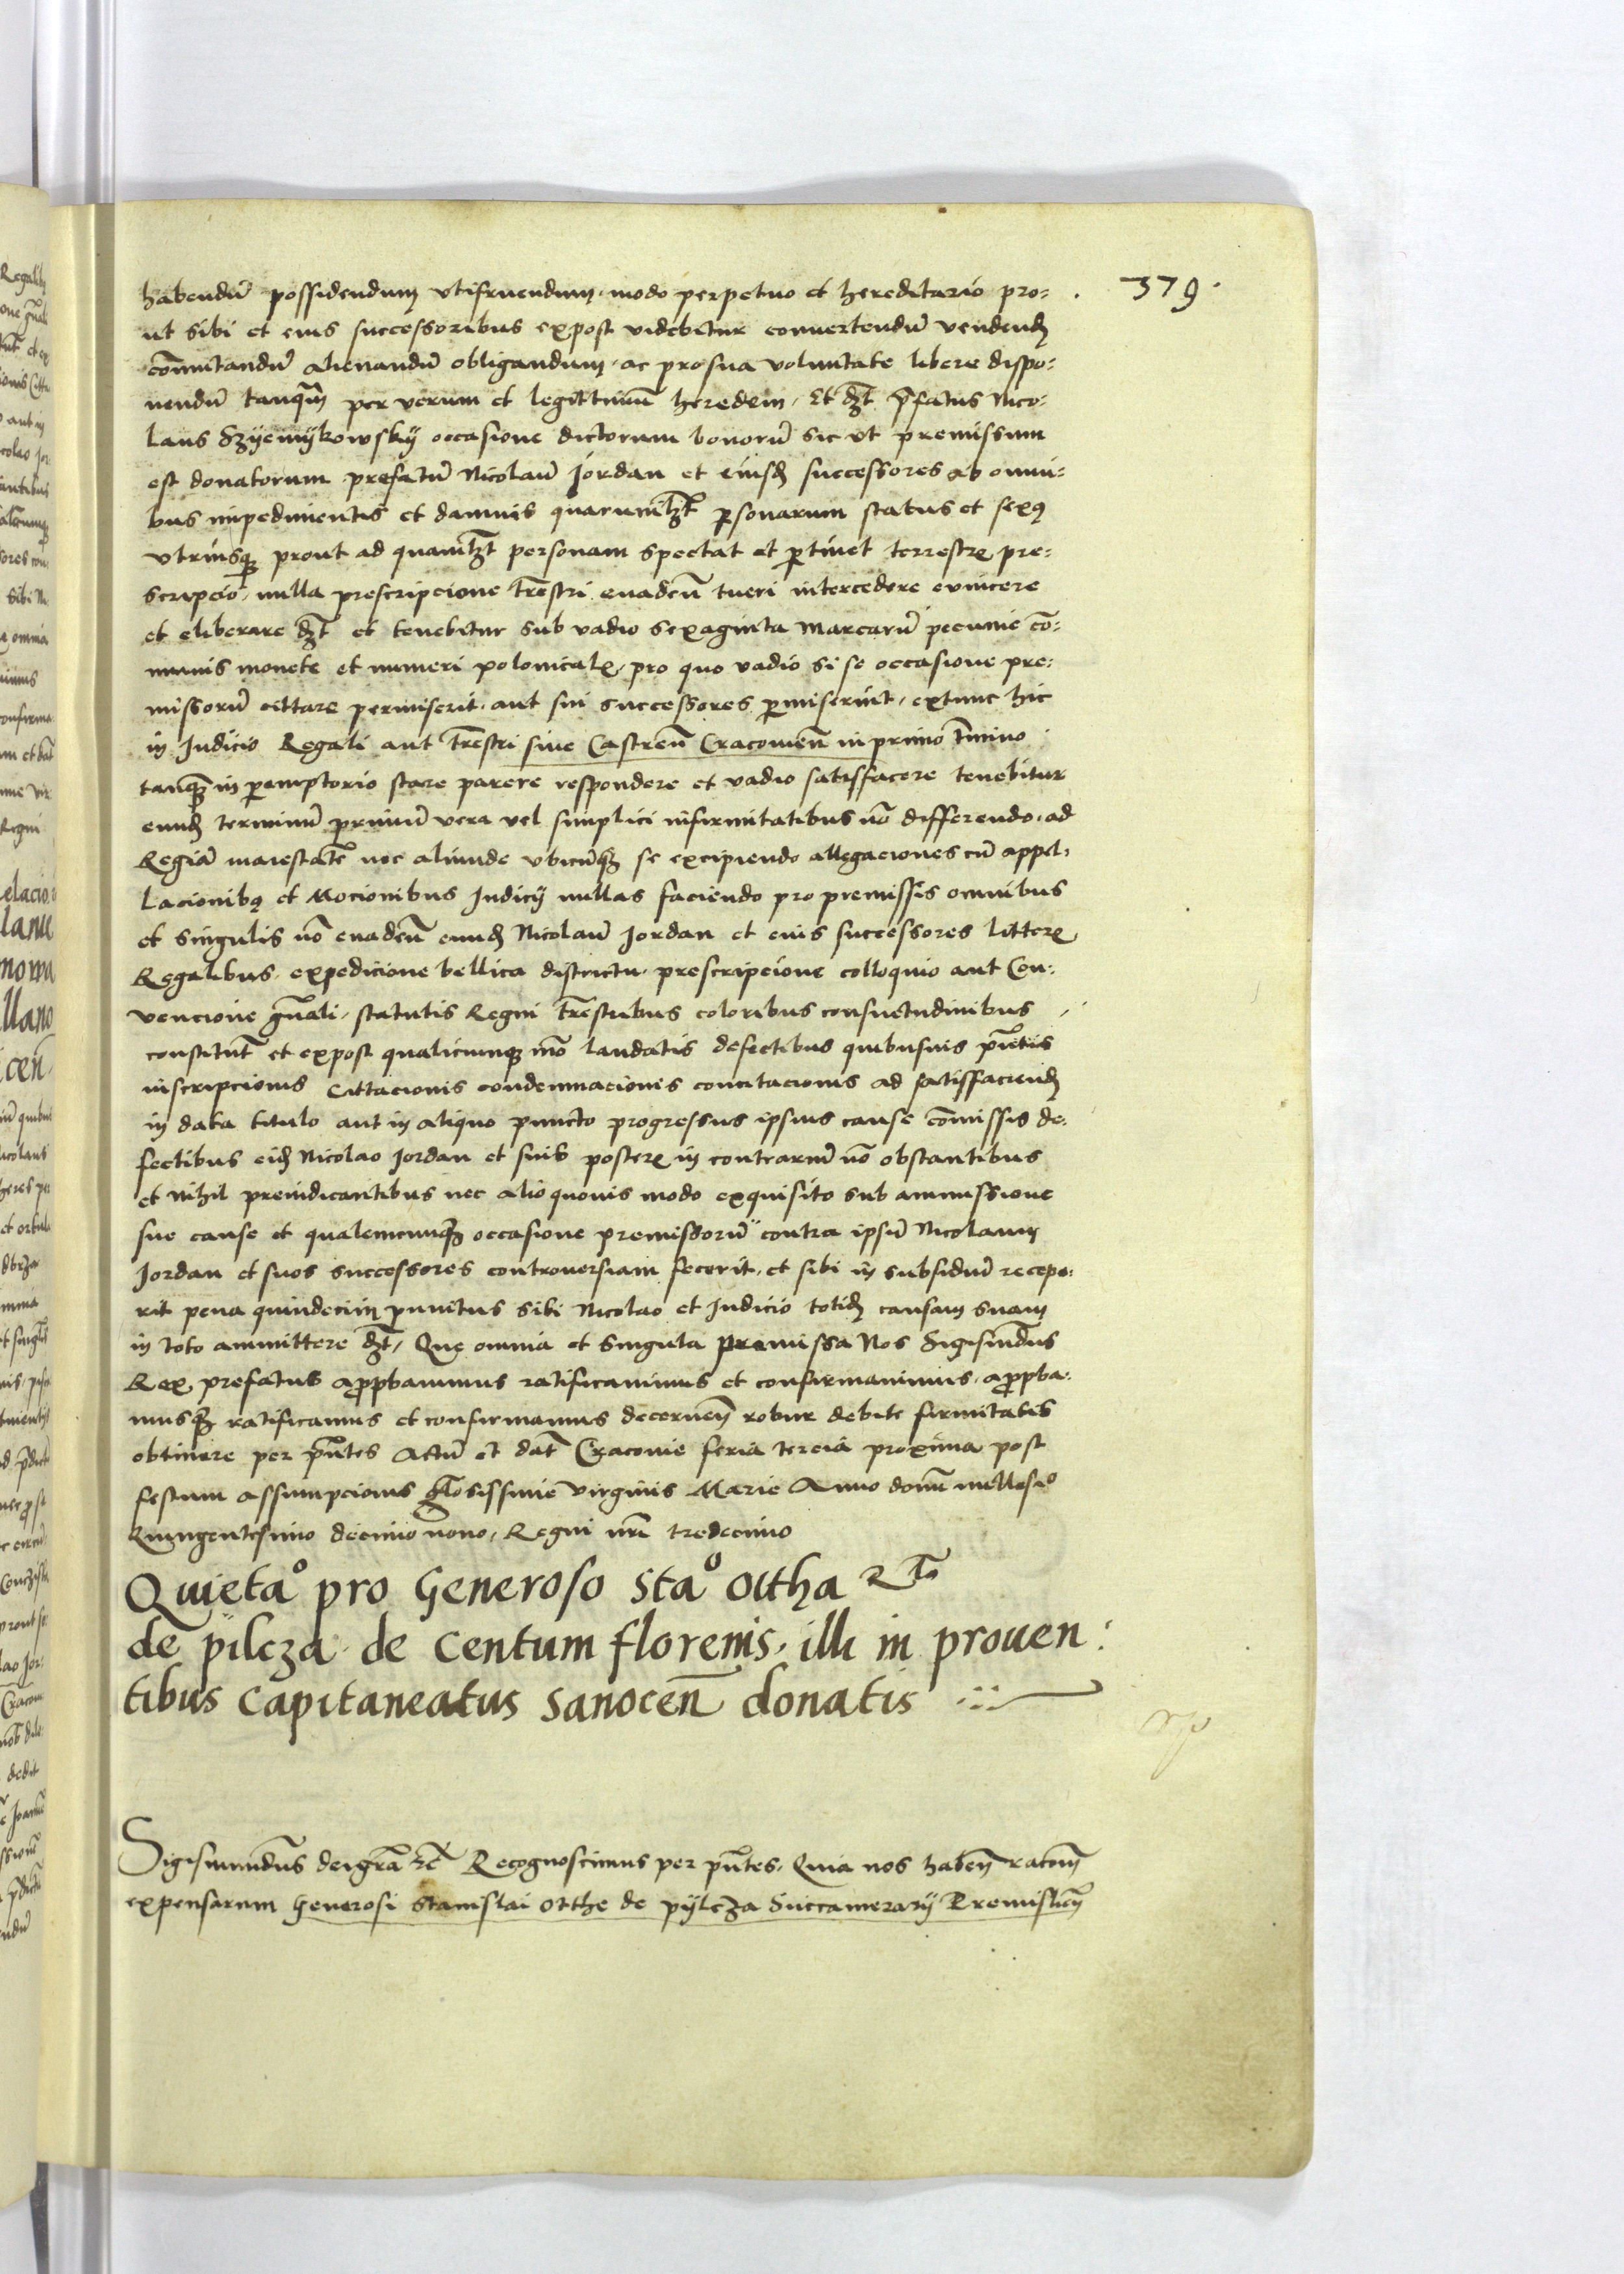 379.
habendū possidendum vtifruendum modo perpetuo et hereditario pro:
ut sibi et eius successoribus expost videbitur convertendū vendend
cōmutandū alienandū obligandum ac pro sua voluntate libere dispo:
nendū tanqm̄ per verum et legittimū heredem. Et dꝫt p̄fatus Nico:
laus Szyemykowsky occasione dictorum bonorū sic vt premissum
est donatorum prefatū Nicolaū Jordan et eiusd successores ab omni:
bus impedimentis et damnis quarumlꝫt personarum status et sexꝰ
vtriusqꝫ prout ad quamlꝫt personam spectat et ꝑtinet terrestrꝭ pre:
scripcio nulla prescripcione trēstri euadeñ tueri intercedere euincere
et eliberare dꝫt et tenebitur sub vadio sexaginta Marcarū pecunie cō:
munis monete et numeri polonicalꝭ. pro quo vadio si se occasione pre:
missorū cittare permiserit. aut sui successores ꝑmiserint. extunc hic
in Judicio Regali aut trēstri siue Castreñ Cracouieñ in primo t̄mino
tanqꝫ in ꝑemptorio stare parere respondere et vadio satisfacere tenebitur
eund terminū primū vera vel simplici infirmitatibus nō differendo. ad
Regiā maiestatē nec aliunde vbicūqꝫ se excipiendo allegaciones cū appel:
lacionibꝰ et Mocionibus Judicij nullas faciendo pro premissis omnibus
et singulis nō euadeñ eund Nicolaū Jordan et eius successores litterꝭ
Regalibus. expedicione bellica districtu. prescripcione colloquio aut Con:
vencione gn̄ali. statutis Regni trēstribus coloribus consuetudinibus
constitut̄ et expost qualicumqꝫ mō laudatis defectibus quibusuis pn̄tis
inscripcionis Cittacionis condemnacionis concitacionis ad satisfaciend
in data titulo aut in aliquo puncto progressus ipsius cause cōmissis de:
fectibus eid Nicolao Jordan et suis posterꝭ in contrariū nō obstantibus
et nihil preiudicantibus nec alio quouis modo exquisito sub ammissione
sue cause et qualemcunqꝫ occasione premissorū contra ipsū Nicolaum
Jordan et suos successores controuersiam fecerit. et sibi in subsidiū recepe:
rit pena quindecim punitus sibi Nicolao et Judicio totid causam suam
in toto ammittere dꝫt. Que omnia et singula premissa Nos Sigismūdus
Rex prefatus approbauimus ratificauimus et confirmauimus. approba:
musqꝫ ratificamus et confirmamus decerneñ robur debite firmitatis
obtinere per pn̄tes Actū et dat̄ Cracouie feria tercia proxima post
festum assumpcionis gl̄osissime virginis Marie Anno domī millesio
Quingentesimo decimo nono. Regni nr̄i tredecimo
Quietao pro Generoso Stao Ottha
de pilcza de centum florenis. illi in prouen:
tibus Capitaneatus Sanoceñ donatis
Sigismundus dei gr̄a etc̄ Recognoscimus per pn̄tes. Quia nos habeñ racōem
expensarum Generosi Stanislai Otthe de pylcza Succamerarij Premislieñ